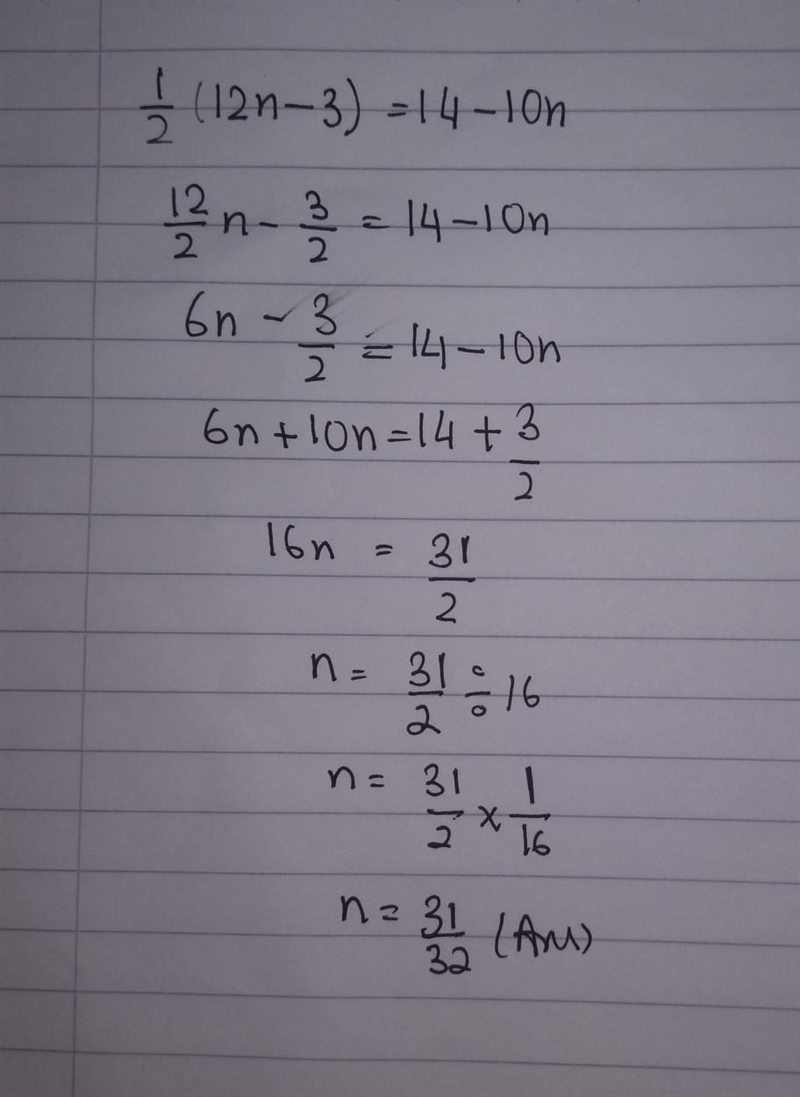 1/2 (12n-3) = 14-10n
12/2 n - 3/2 = 14-10n
6n - 3/2 = 14-10n
6n+10n=14+3/2
16n = 31/2
n = 31/2 ÷ 16
n = 31/2 x 1/16
n = 31/32 (Ans)